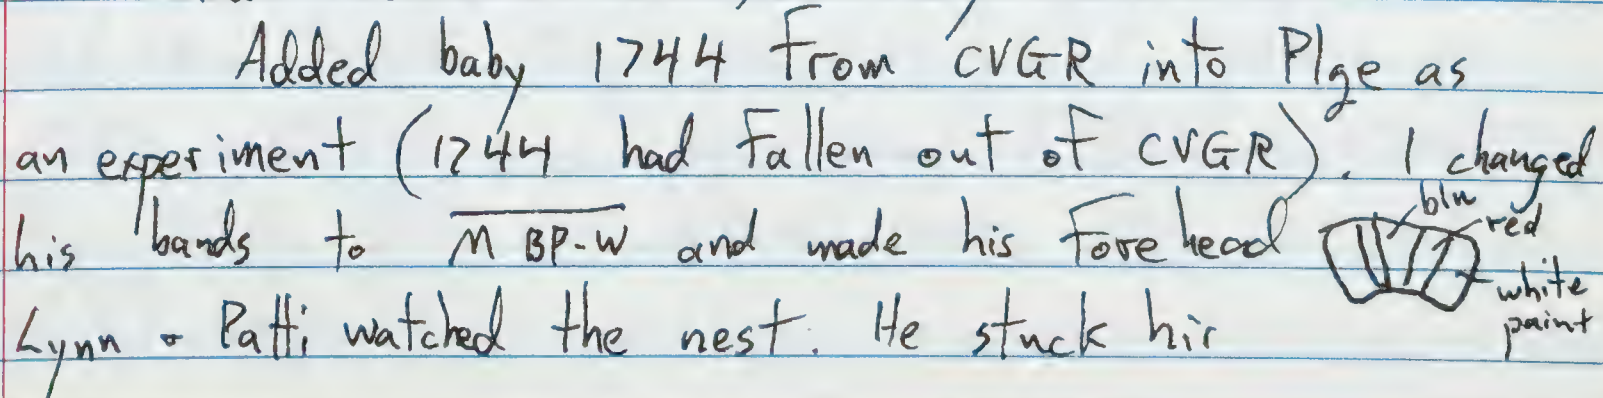 Added baby 1744 from CVGR into Plge as
an experiment (1744 had fallen out of CVGR). I changed
his bands to M BP-W and made his forehead
blu
red
white
paint
Lynn + Patti watched the nest. He stuck his